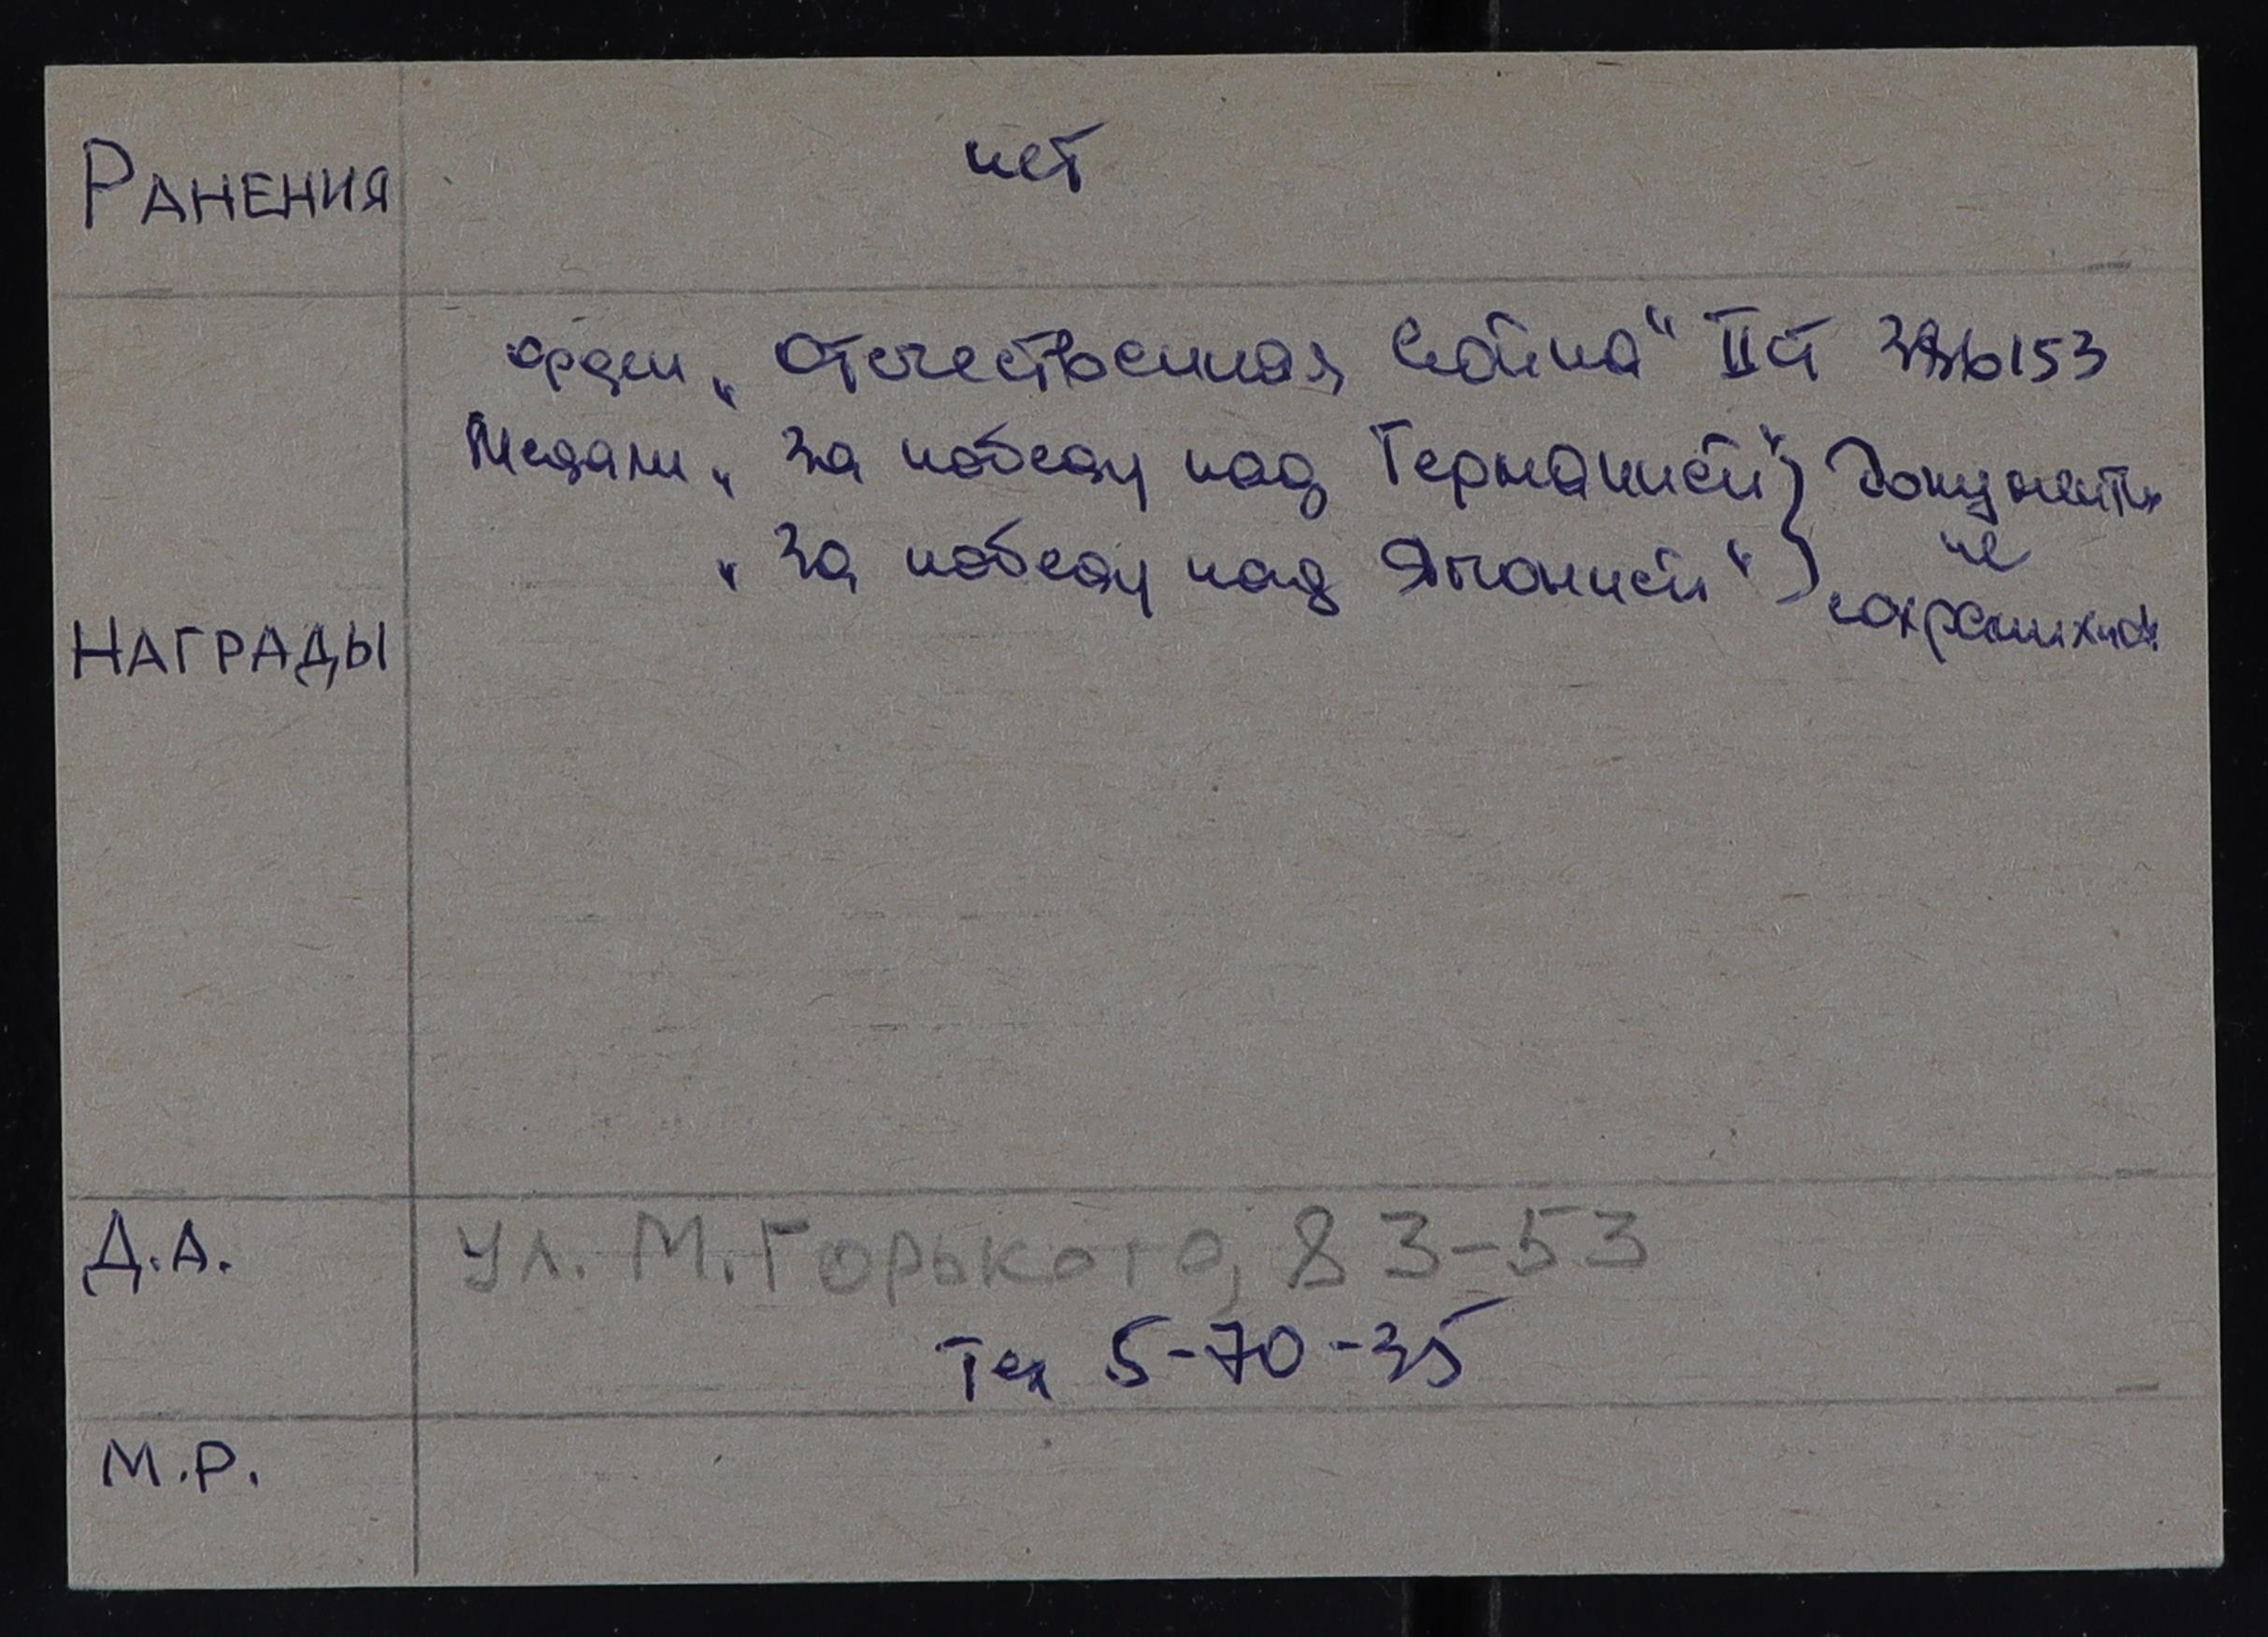 РАНЕНИЯ нет
орден „Отечественная война“ II ст
Медали „За победу над Германией“ } Документы
„За победу над Японией“ } не
сохранились
НАГРАДЫ
Д.А. ул. М. Горького, 83-53
Тел 5-70-35
М.Р.